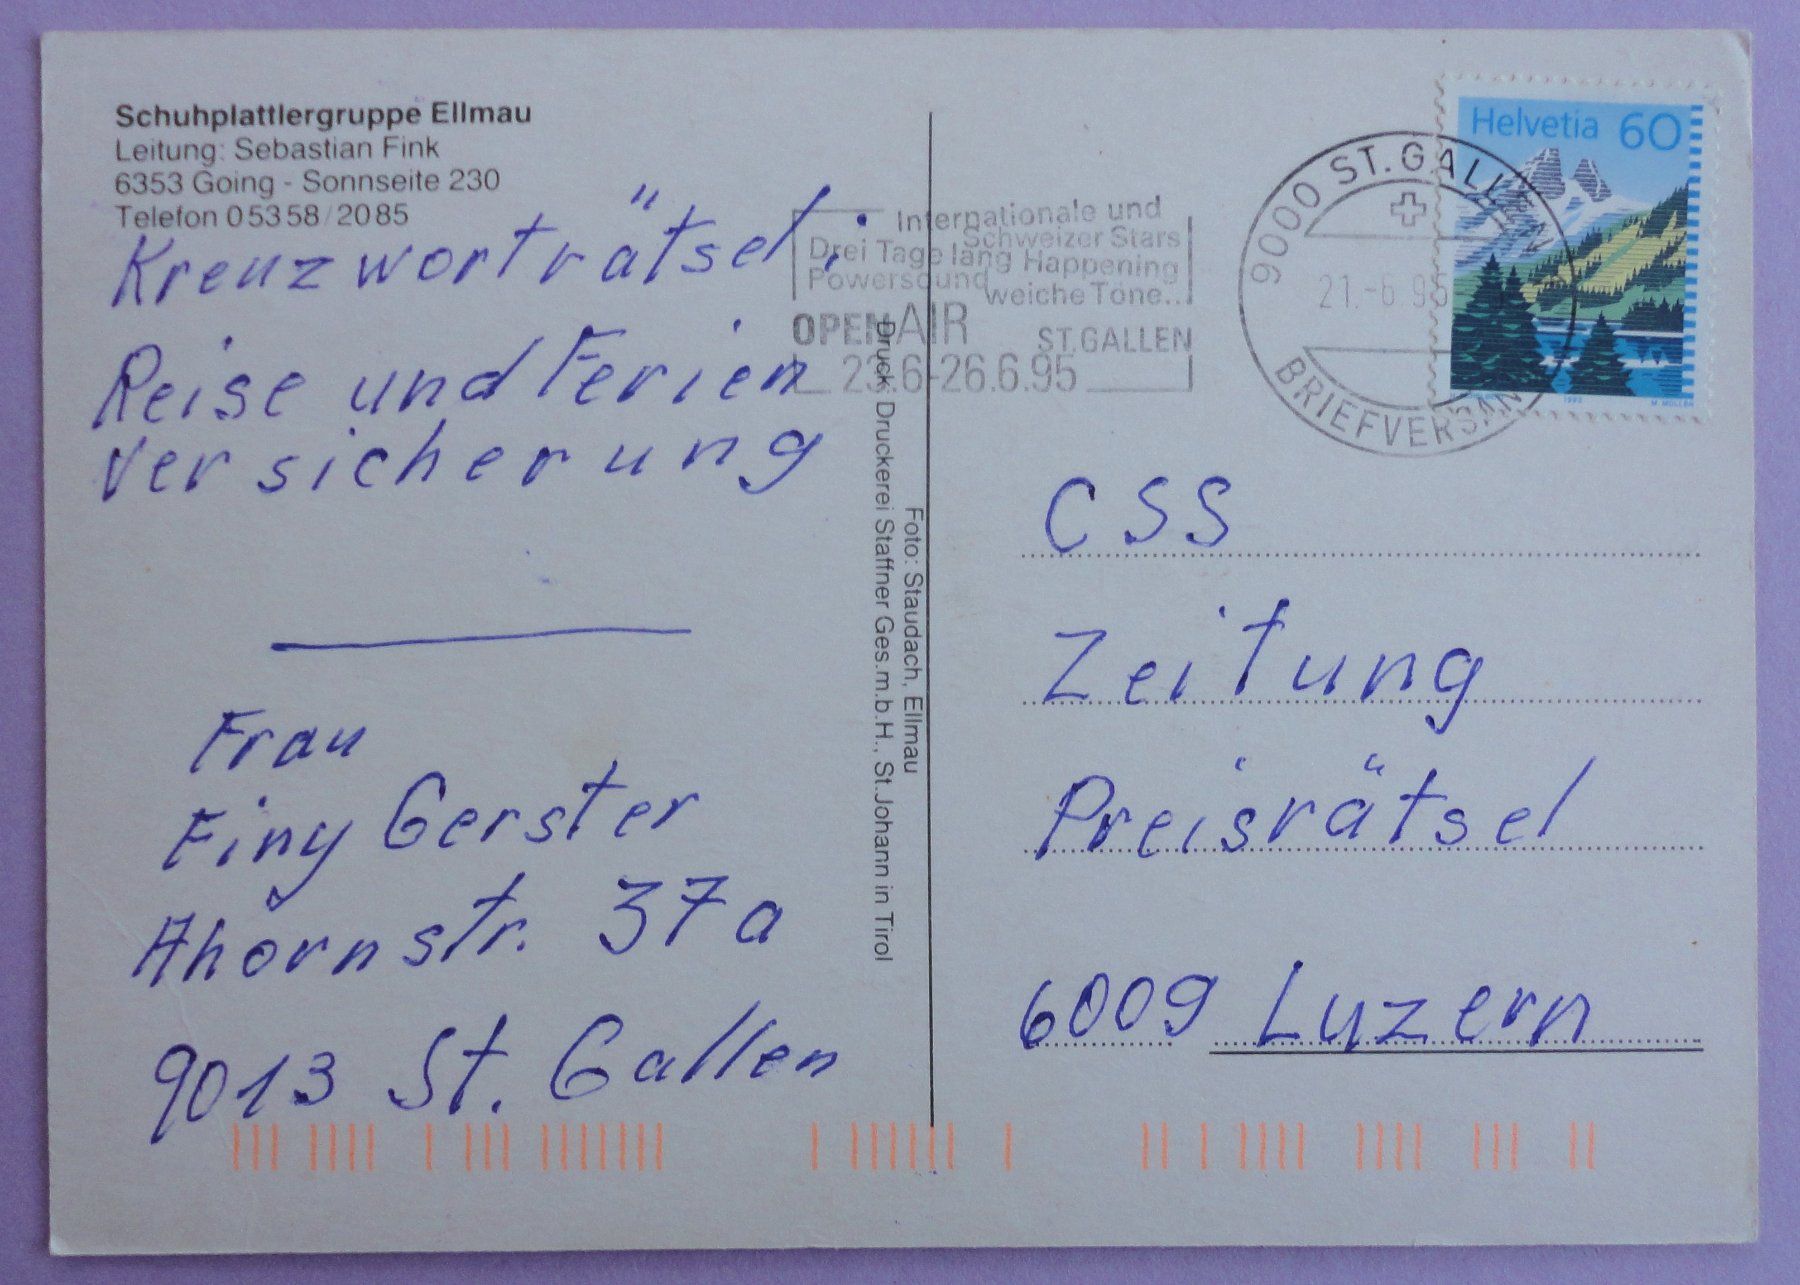 Schuhplattlergruppe Ellmau
Leitung: Sebastian Fink
6353 Going - Sonnseite 230
Telefon 05358/2085
Kreuzworträtsel:
Reise und Ferien
versicherung
Frau
Finy Gerster
Ahornstr. 37a
9013 St. Gallen
Foto: Staudach, Ellmau
Druck: Druckerei Staffner Ges.m.b.H., St.Johann in Tirol
Internationale und
Schweizer Stars
Drei Tage lang Happening
Powersound
weiche Töne...
OPEN AIR
ST.GALLEN
23.6-26.6.95
9000 ST.GALLEN
21.-6.95
BRIEFVERSAND
Helvetia 60
1993
CSS
Zeitung
Preisrätsel
6009 Luzern